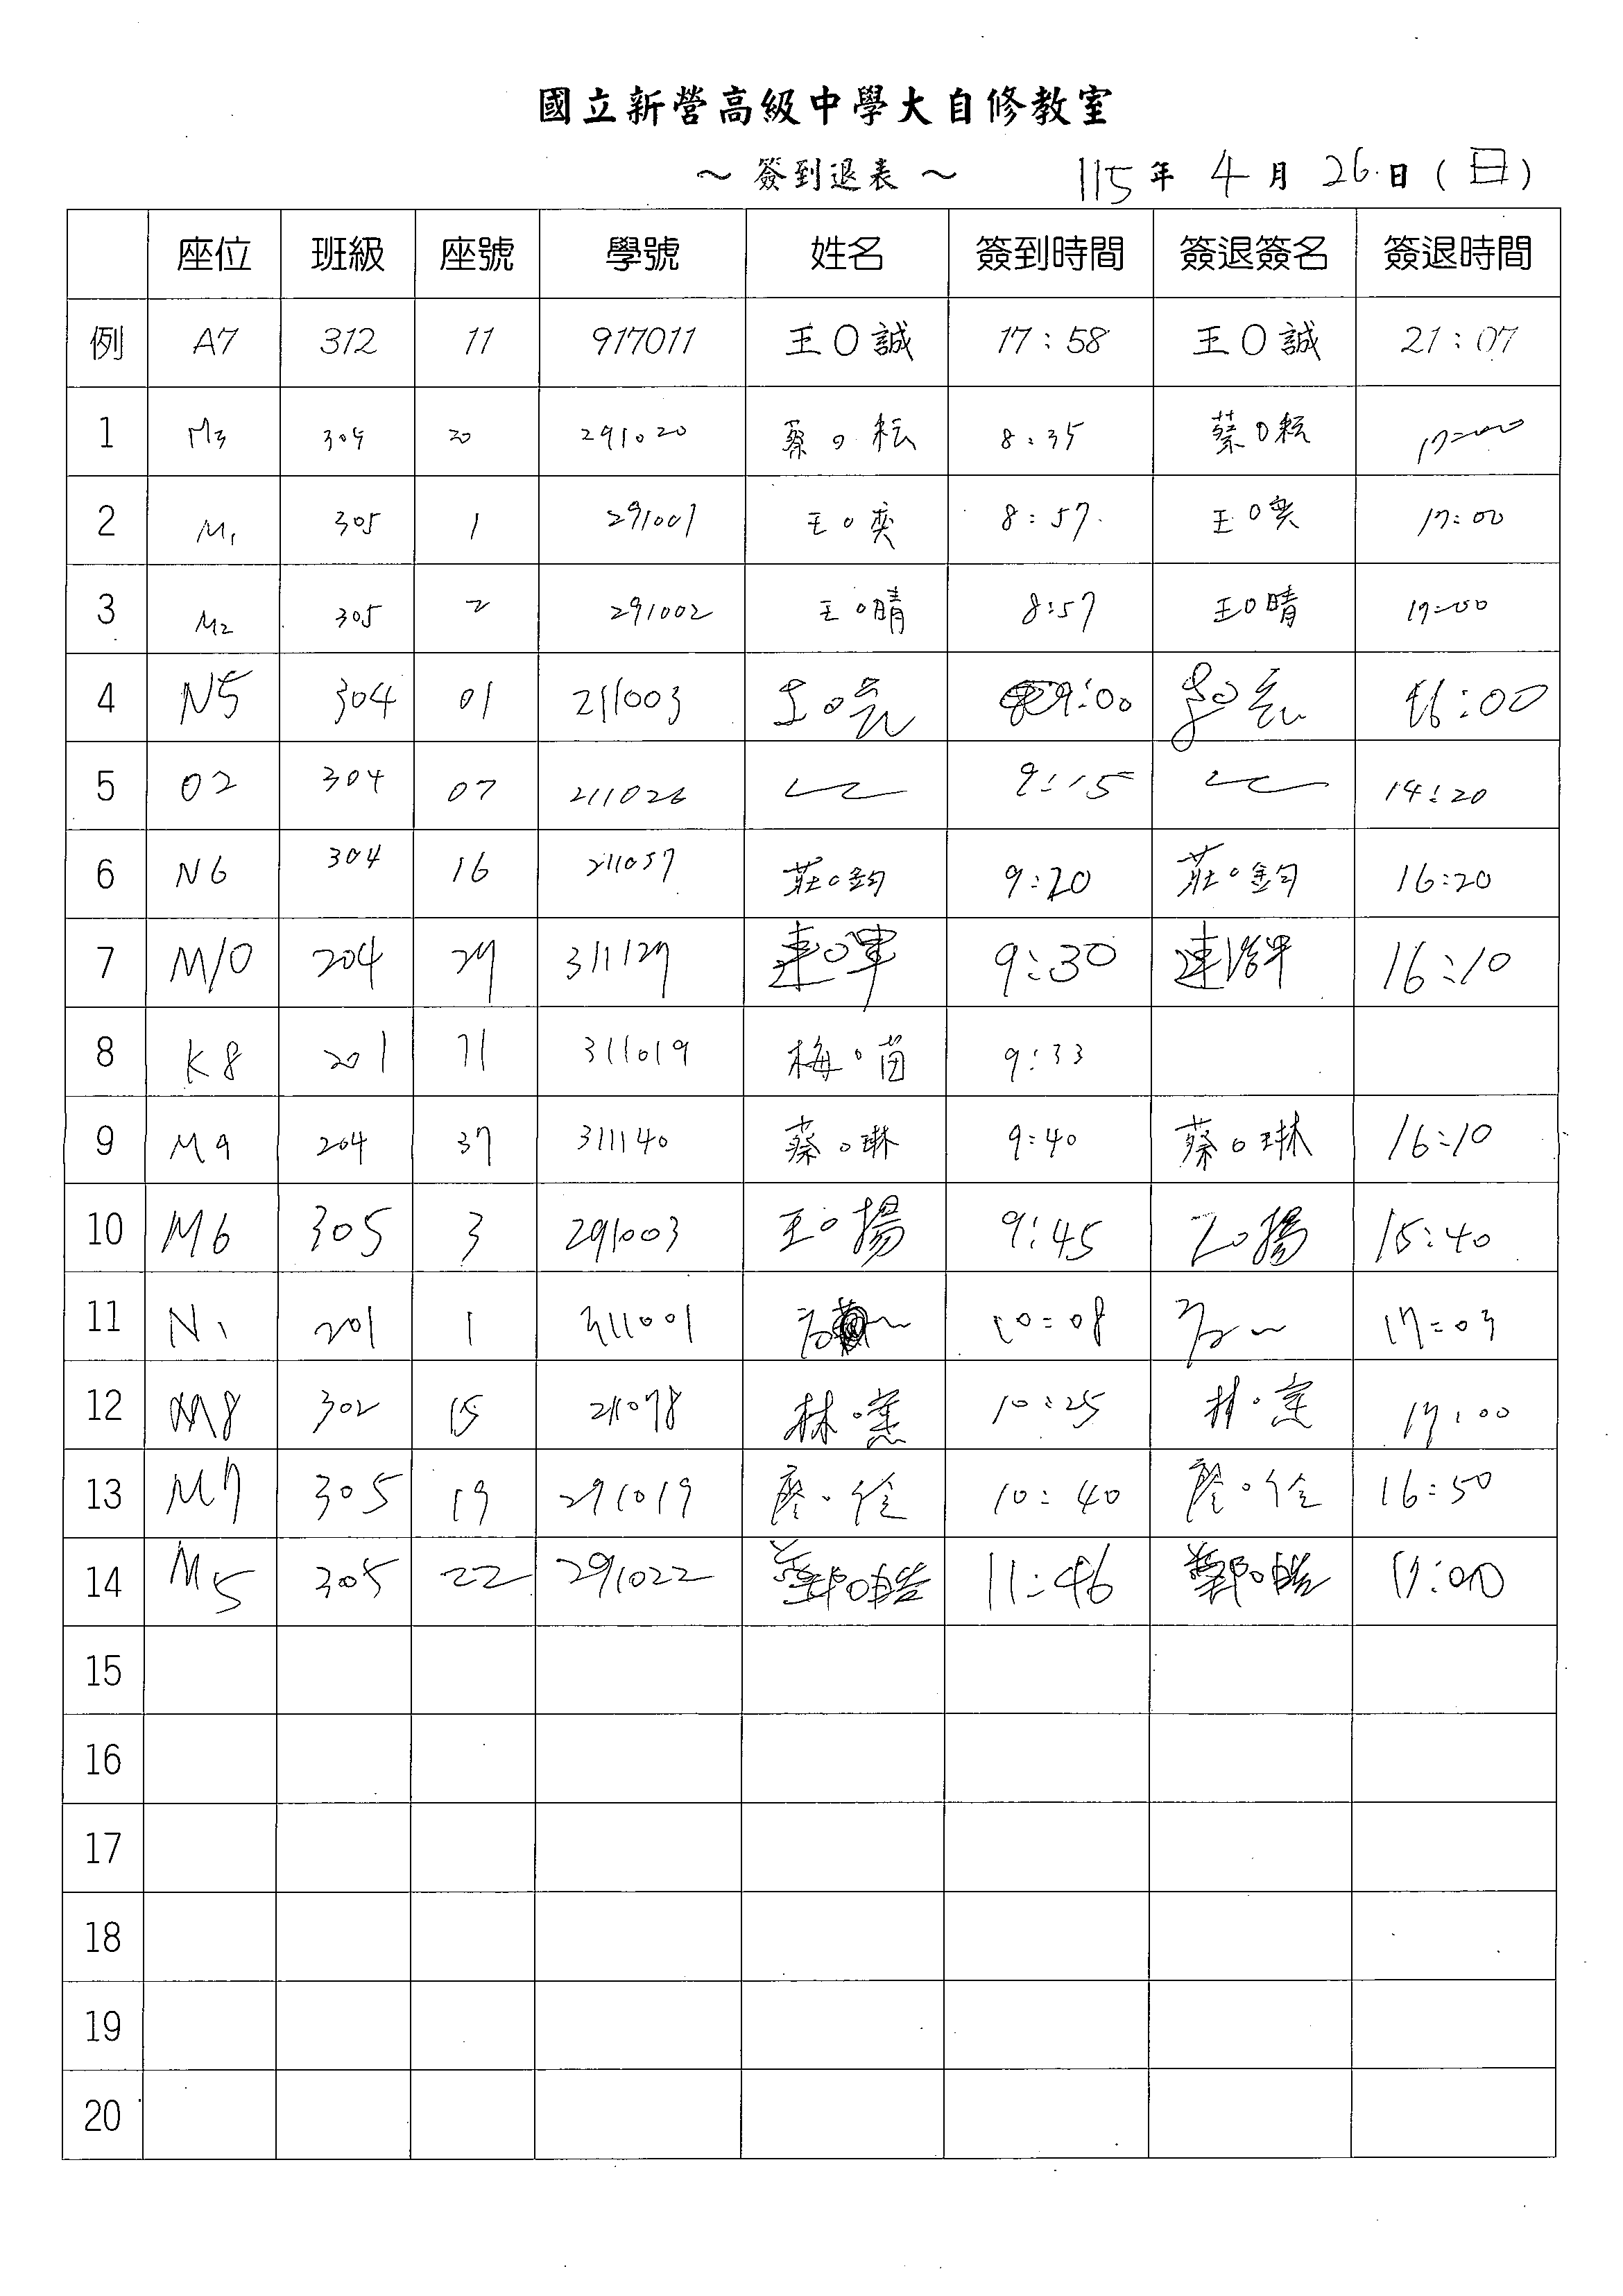 國立新營高級中學大自修教室
～ 簽到退表 ～ 115年 4月 26日 (日)
座位 班級 座號 學號 姓名 簽到時間 簽退簽名 簽退時間
例 A7 312 11 917011 王O誠 17:58 王O誠 21:07
1 M3 305 20 291020 蔡O耘 8:35 蔡O耘 17:00
2 M1 305 1 291001 王O奕 8:57 王O奕 17:00
3 M2 305 2 291002 王O晴 8:57 王O晴 17:00
4 N5 304 01 211003 王O亮 9:00 16:00
5 02 304 07 211026 9:15 14:20
6 N6 304 16 211057 莊O鈞 9:20 莊O鈞 16:20
7 M10 204 29 311129 連O單 9:30 16:10
8 K8 201 311019 梅O茵 9:33
9 M9 204 37 311140 蔡O琳 9:40 蔡O琳 16:10
10 M6 305 3 291003 王O揚 9:45 王O揚 15:40
11 N1 201 1 311001 10:08 17:03
12 M8 302 15 211078 林O薰 10:25 17:00
13 M7 305 19 291019 廖O佺 10:40 廖O佺 16:50
14 M5 305 22 291022 鄭O皓 11:46 鄭O皓 17:00
15
16
17
18
19
20